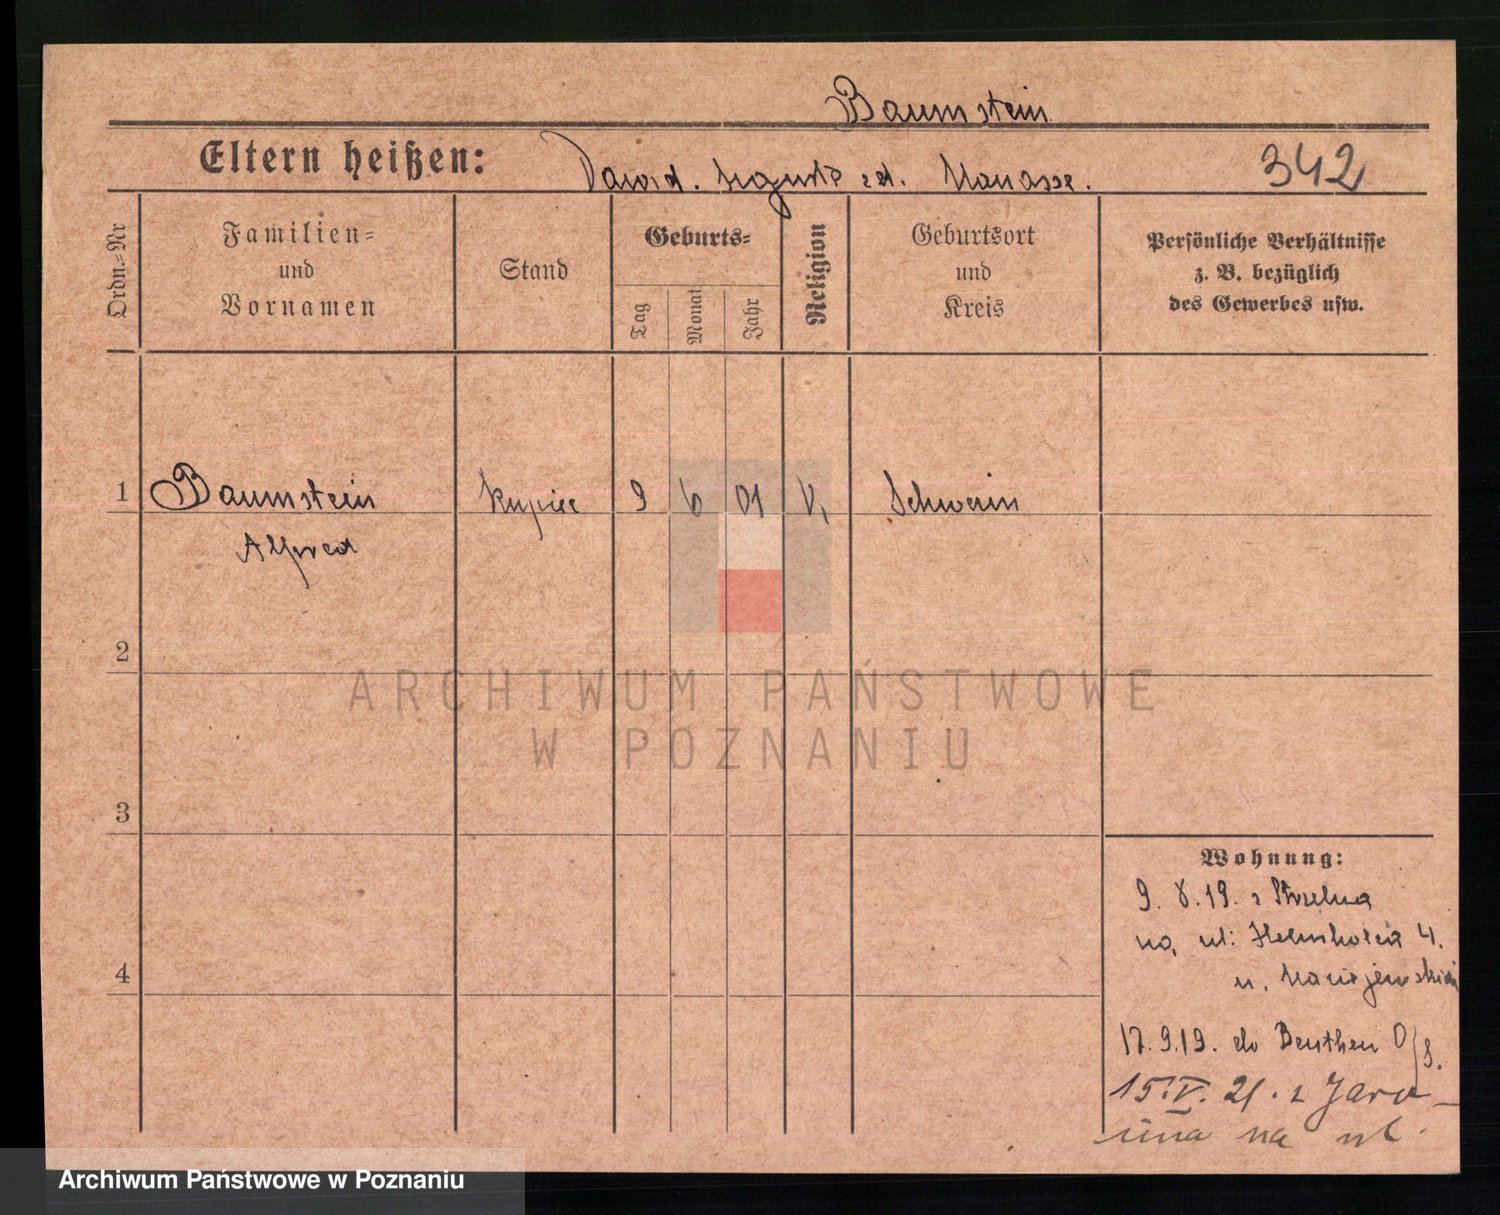 Baumstein
Eltern heißen: Dawid. Augusta zd. Manasse. 342
Ordn.-Nr
Familien-
und
Vornamen
Stand
Geburts-
Tag
Monat
Jahr
Religion
Geburtsort
und
Kreis
Persönliche Verhältnisse
z. B. bezüglich
des Gewerbes usw.
1 Baumstein kupiec 9 6 01 Schwerin
Alfred
2
3
4
Wohnung:
9. 8. 19. z Strzelna
na, ul: Helmholza 4.
u.
17. 9. 19. do Beuthen O/S.
15. V. 21. z Jaro-
cina na ul.
ARCHIWUM PAŃSTWOWE
W POZNANIU
Archiwum Państwowe w Poznaniu